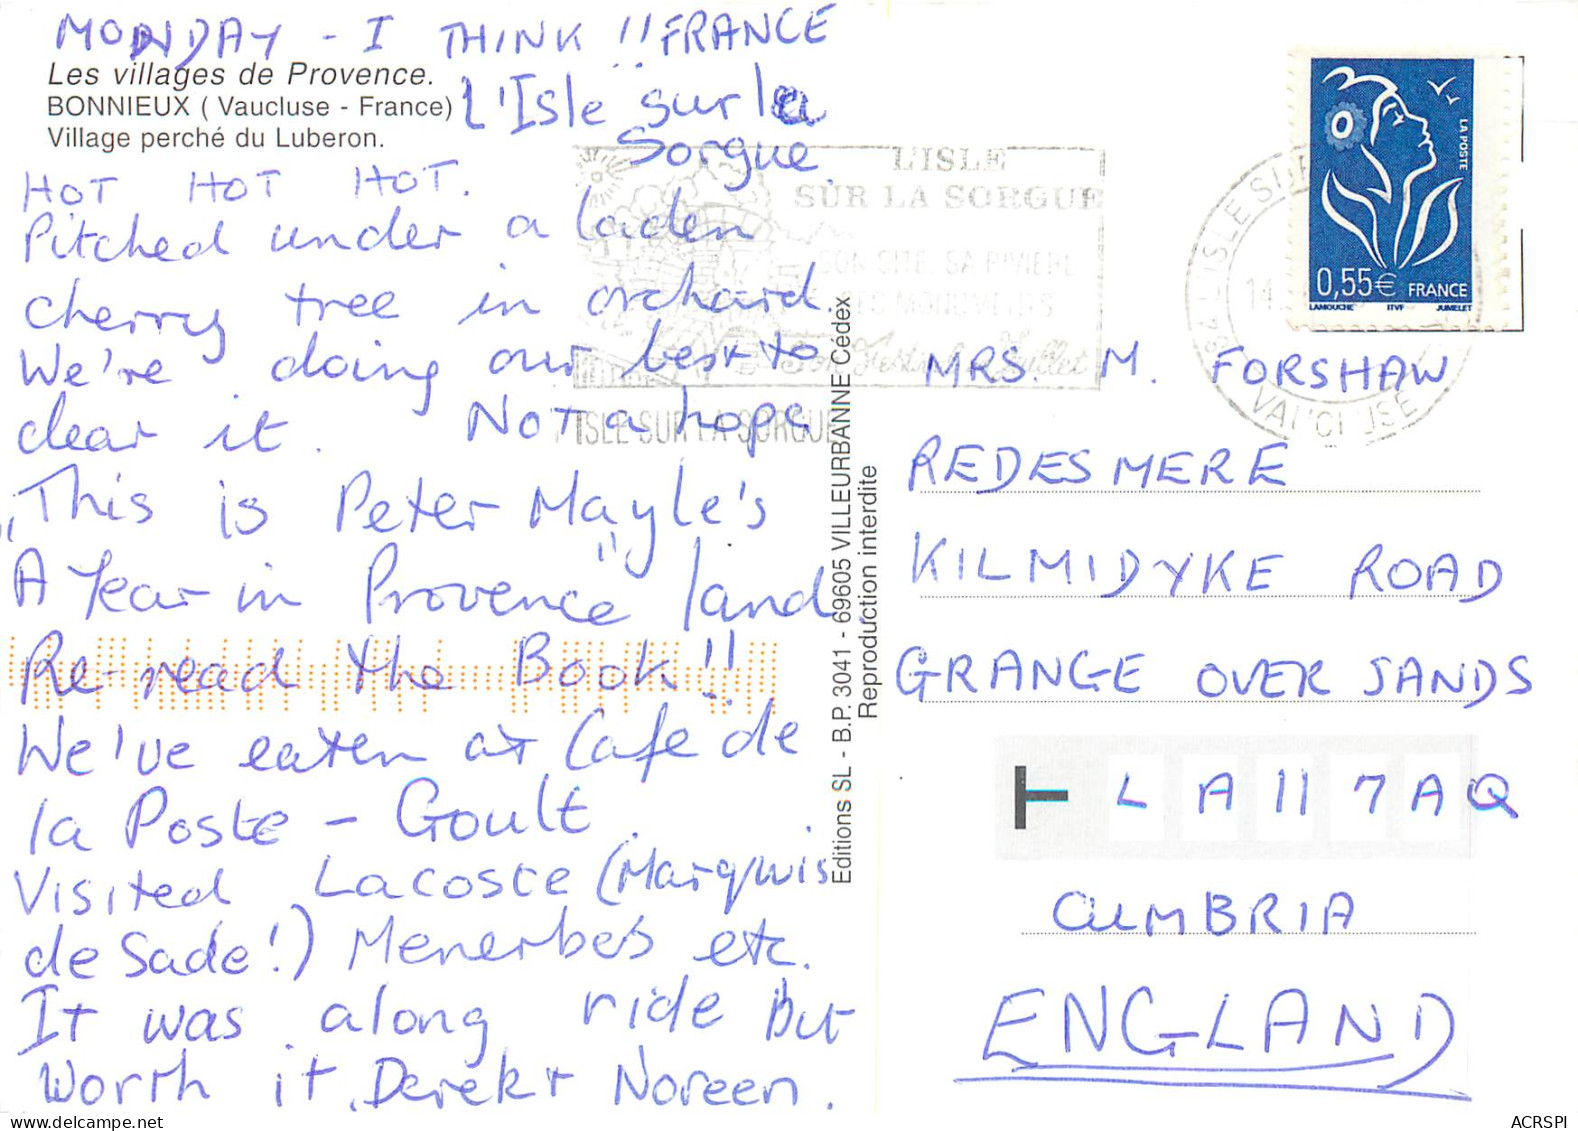 MONDAY - I THINK !! FRANCE
Les villages de Provence.
BONNIEUX ( Vaucluse - France)
Village perché du Luberon.
L'Isle sur la
Sorgue.
HOT HOT HOT.
Pitched under a laden
cherry tree in orchard.
We're doing our best to
clear it. Not a hope
"This is Peter Mayle's
A Year in Provence" land.
Re-read the Book!!
We've eaten at Cafe de
la Poste - Goult.
Visited Lacoste (Marquis
de Sade!) Menerbes etc.
It was along ride But
worth it. Derek + Noreen.
Editions SL - B.P. 3041 - 69605 VILLEURBANNE Cédex
Reproduction interdite
L'ISLE
SUR LA SORGUE
SON SITE, SA RIVIERE
SES MONUMENTS
Son Festival de Juillet
L'ISLE SUR LA SORGUE
VAUCLUSE
LA POSTE
0,55€ FRANCE
LAMOUCHE ITVF JUMELET
MRS. M. FORSHAW
REDESMERE
KILMIDYKE ROAD
GRANGE OVER SANDS
LA11 7AQ
CUMBRIA
ENGLAND
ACRSPI